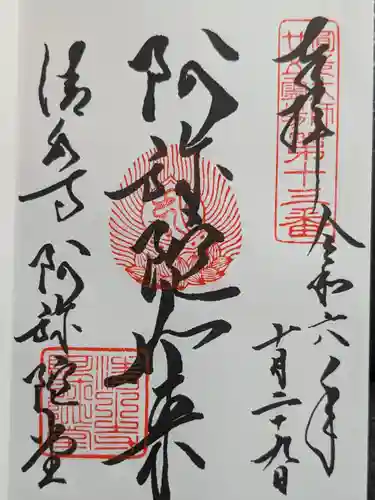 奉拝
圓光大師
廿五霊場第十三番
令和六年
十月二十九日
阿弥陀如来
清水寺
阿弥陀堂